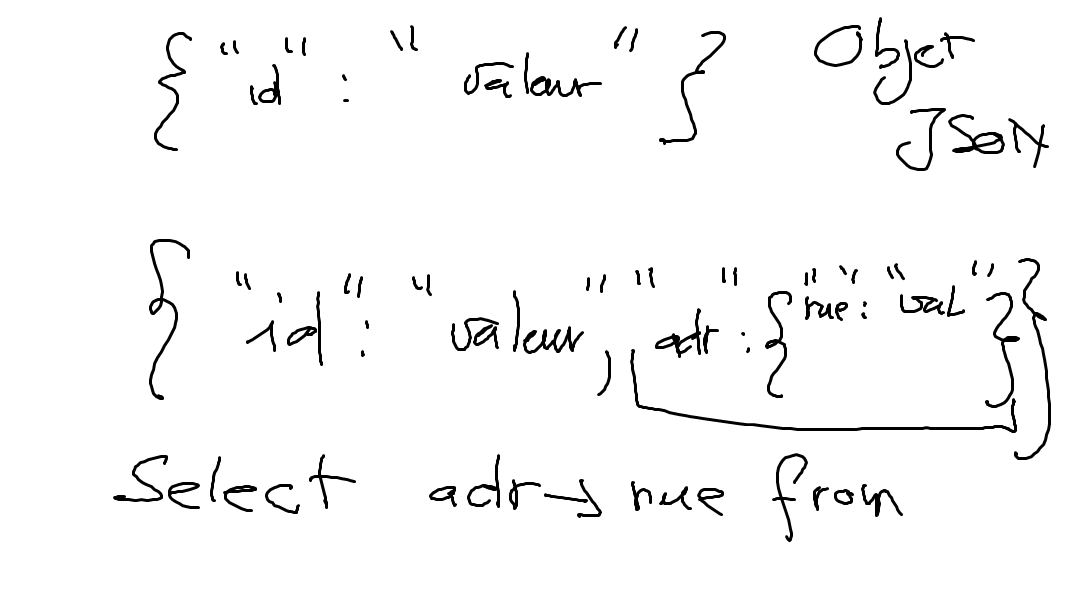 { "id" : "valeur" } Objet
JSON
{ "id" : "valeur", "adr" : { "rue" : "val" } }
Select adr → rue from